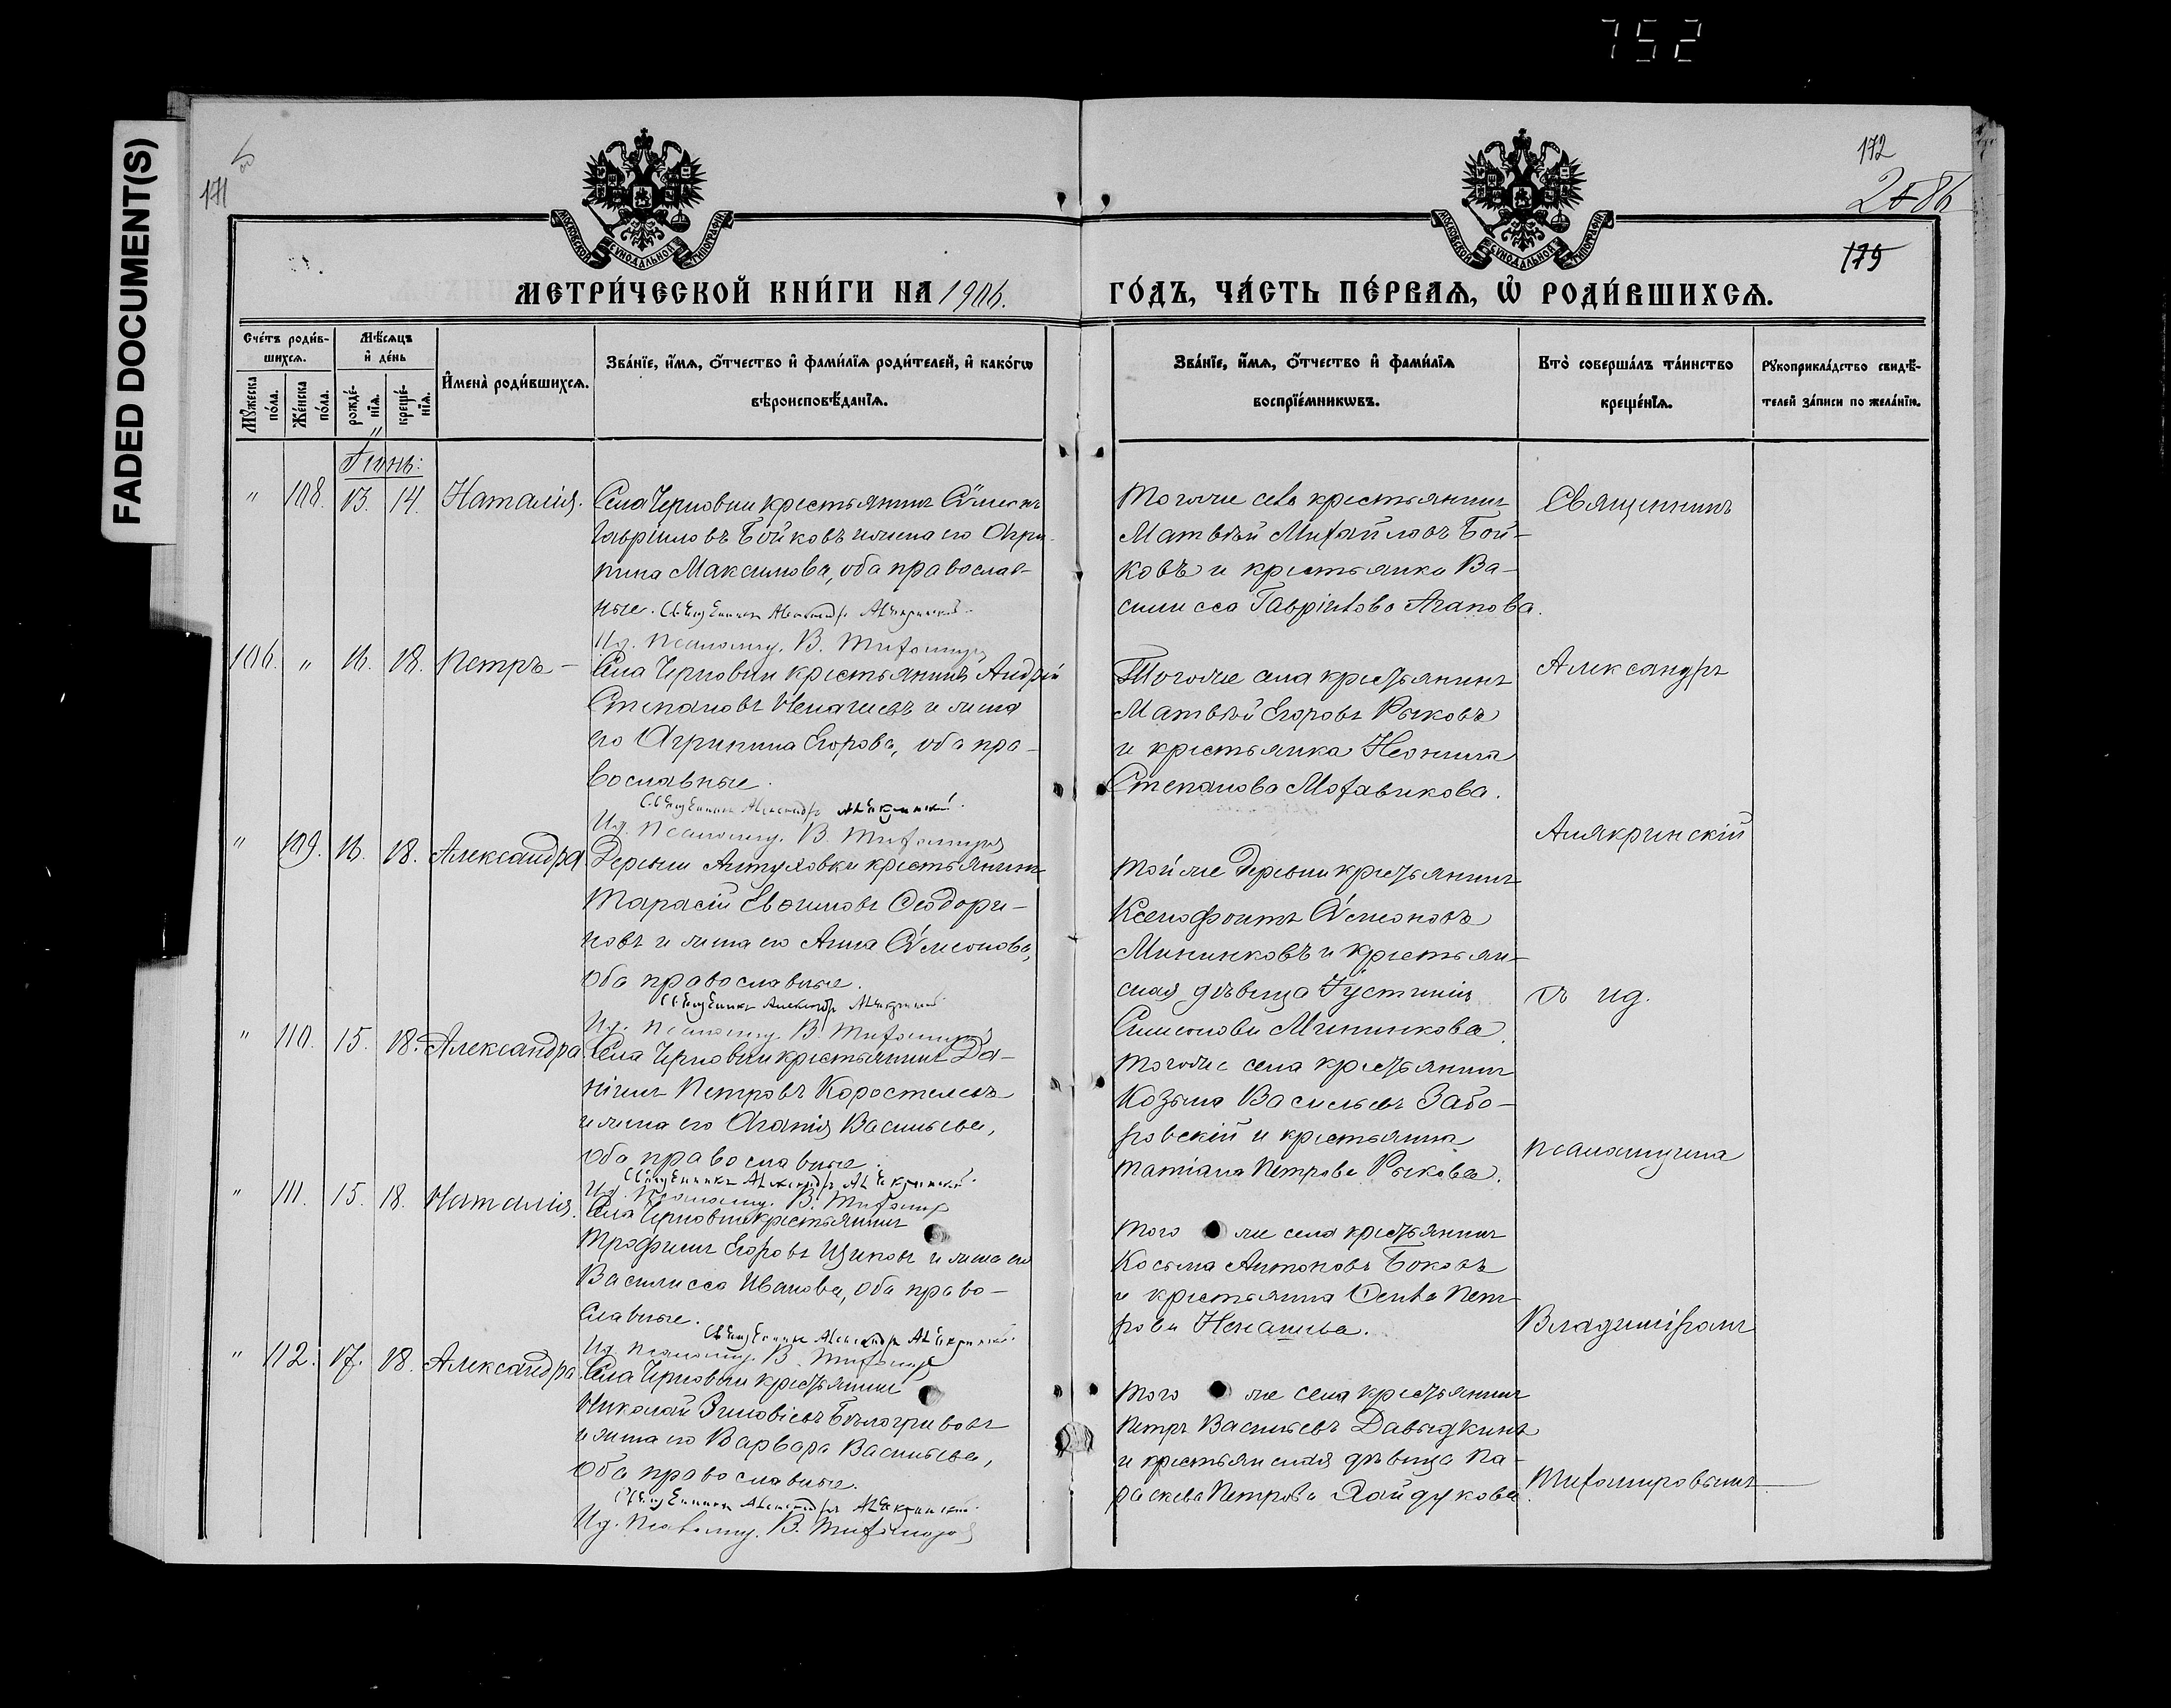 752
FADED DOCUMENT(S)
171
172
2586
175
МОСКОВСКОЙ СѴНОДАЛЬНОЙ ТИПОГРАФІИ
МОСКОВСКОЙ СѴНОДАЛЬНОЙ ТИПОГРАФІИ
МЕТРИ́ЧЕСКОЙ КНИ́ГИ НА 1906.
ГО́ДЪ, ЧА́СТЬ ПЕ́РВАѦ, Ѡ҆ РОДИ́ВШИХСѦ.
Сче́тъ роди́в-
шихсѧ.
Мꙋ́жеска по́ла.
Же́нска по́ла.
Мѣ́сѧцъ
и҆ де́нь
рожде́-нїѧ.
креще́-нїѧ.
И҆мена̀ роди́вшихсѧ.
Зва́нїе, и҆́мѧ, ѻ҆́тчество и҆ фами́лїѧ роди́телей, и҆ како́гѡ
вѣроисповѣ́данїѧ.
Зва́нїе, и҆́мѧ, ѻ҆́тчество и҆ фами́лїѧ
воспрїе́мникѡвъ.
Кто̀ соверша́лъ та́инство
креще́нїѧ.
Рꙋкоприкла́дство свидѣ́-
телей за́писи по жела́нїю.
Іюнь:
" 108. 13. 14. Наталія. Села Черновки крестьянинъ Сѵмеонъ
Гавріиловъ Бойковъ и жена его Агри-
пина Максимова, оба православ-
ные. Священникъ Александръ Алякринскій.
Ид. псаломщ. В. Тихомировъ
Того же села крестьянинъ
Матвѣй Михайловъ Бой-
ковъ и крестьянка Ва-
силисса Гавріилова Агапова.
106. " 16. 18. Петръ – Села Черновки крестьянинъ Андрей
Степановъ Ненашевъ и жена
его Агрипина Егорова, оба пра-
вославные.
Священникъ Александръ Алякринскій.
Ид. псаломщ. В. Тихомировъ
Того же села крестьянинъ
Матвѣй Егоровъ Рыковъ
и крестьянка Неонила
Степанова Моравикова.
" 109. 16. 18. Александра Деревни Антуховки крестьянинъ
Тарасій Евѳимовъ Ѳеодори-
новъ и жена его Анна Сѵмеонова,
оба православные.
Священникъ Александръ Алякринскій.
Ид. псаломщ. В. Тихомировъ
Той же деревни крестьянинъ
Ксенофонтъ Сѵмеоновъ
Мининковъ и крестьян-
ская дѣвица Іустинія
Симеонова Мининкова.
" 110. 15. 18. Александра Села Черновки крестьянинъ Да-
ніилъ Петровъ Коростелевъ
и жена его Агапія Васильева,
оба православные.
Священникъ Александръ Алякринскій.
Ид. псаломщ. В. Тихомировъ
Того же села крестьянинъ
Козьма Васильевъ Забо-
ровскій и крестьянка
Татіана Петрова Рыкова.
" 111. 15. 18. Наталія. Села Черновки крестьянинъ
Трофимъ Егоровъ Щуковъ и жена его
Василисса Иванова, оба право-
славные.
Священникъ Александръ Алякринскій.
Ид. псаломщ. В. Тихомировъ
Того же села крестьянинъ
Косьма Антоновъ Боковъ
и крестьянка Ѳекла Пет-
рова Ненашева.
" 112. 17. 18. Александра Села Черновки крестьянинъ
Николай Зиновіевъ Бѣлогривовъ
и жена его Варвара Васильева,
оба православные.
Священникъ Александръ Алякринскій.
Ид. псаломщ. В. Тихомировъ
Того же села крестьянинъ
Петръ Васильевъ Давыдкинъ
и крестьянская дѣвица Па-
раскева Петрова Хайдукова.
Священникъ
Александръ
Алякринскій
съ ид.
псаломщика
Владиміромъ
Тихомировымъ